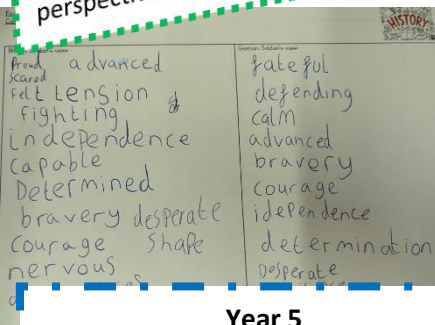 perspecti
HISTORY
British Soldier's view
Proud advanced
Scared
felt tension
fighting
independence
capable
Determined
bravery desperate
courage shape
nervous
German Soldier's view
fateful
defending
calm
advanced
bravery
courage
idependence
determination
Desperate
Year 5